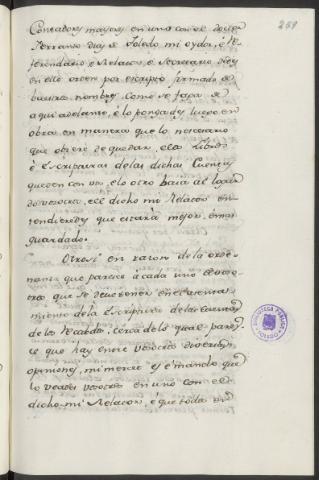 259
Contadores mayores en uno con el doctor
Ferrando Diaz de Toledo mi oydor, é Re-
ferendario é Relator, é Secretario dey
en ello orden por escripto firmado de
buestros nombres, como se faga de
aqui adelante, é lo pongades luego en
obra en manera que lo necesario
que obiere de quedar, é los Libros
é Escripturas de las dichas Cuentas
queden con vos, é lo otro baia al logar
do vosotros, é el dicho mi Relator en-
tendieredes que estará mejor, é mas
guardado.
Otrosi en razon de la orde-
nanza que parece á cada uno de voso-
tros que se deve tener en el asenta-
miento de la Escriptura de las cuentas
de los Recabdos, cerca de lo qual pare-
ce que hay entre vosotros diversas
opiniones, mi merced es é mando que
lo veades vosotros en uno con el
dicho mi Relator, é que todos en
BIBLIOTECA PUBLICA
TOLEDO